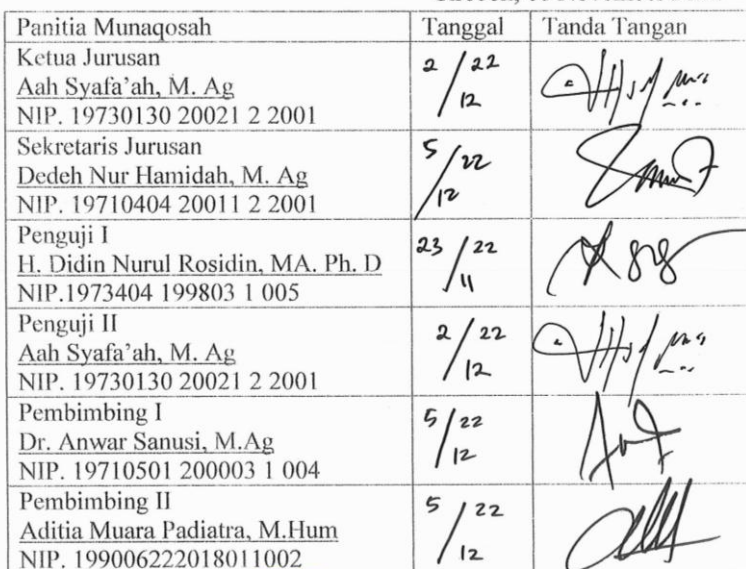 Panitia Munaqosah Tanggal Tanda Tangan
Ketua Jurusan
Aah Syafa'ah, M. Ag
NIP. 19730130 20021 2 2001
2 / 22
12
Sekretaris Jurusan
Dedeh Nur Hamidah, M. Ag
NIP. 19710404 20011 2 2001
5 / 22
12
Penguji I
H. Didin Nurul Rosidin, MA. Ph. D
NIP.1973404 199803 1 005
23 / 22
11
Penguji II
Aah Syafa'ah, M. Ag
NIP. 19730130 20021 2 2001
2 / 22
12
Pembimbing I
Dr. Anwar Sanusi, M.Ag
NIP. 19710501 200003 1 004
5 / 22
12
Pembimbing II
Aditia Muara Padiatra, M.Hum
NIP. 199006222018011002
5 / 22
12